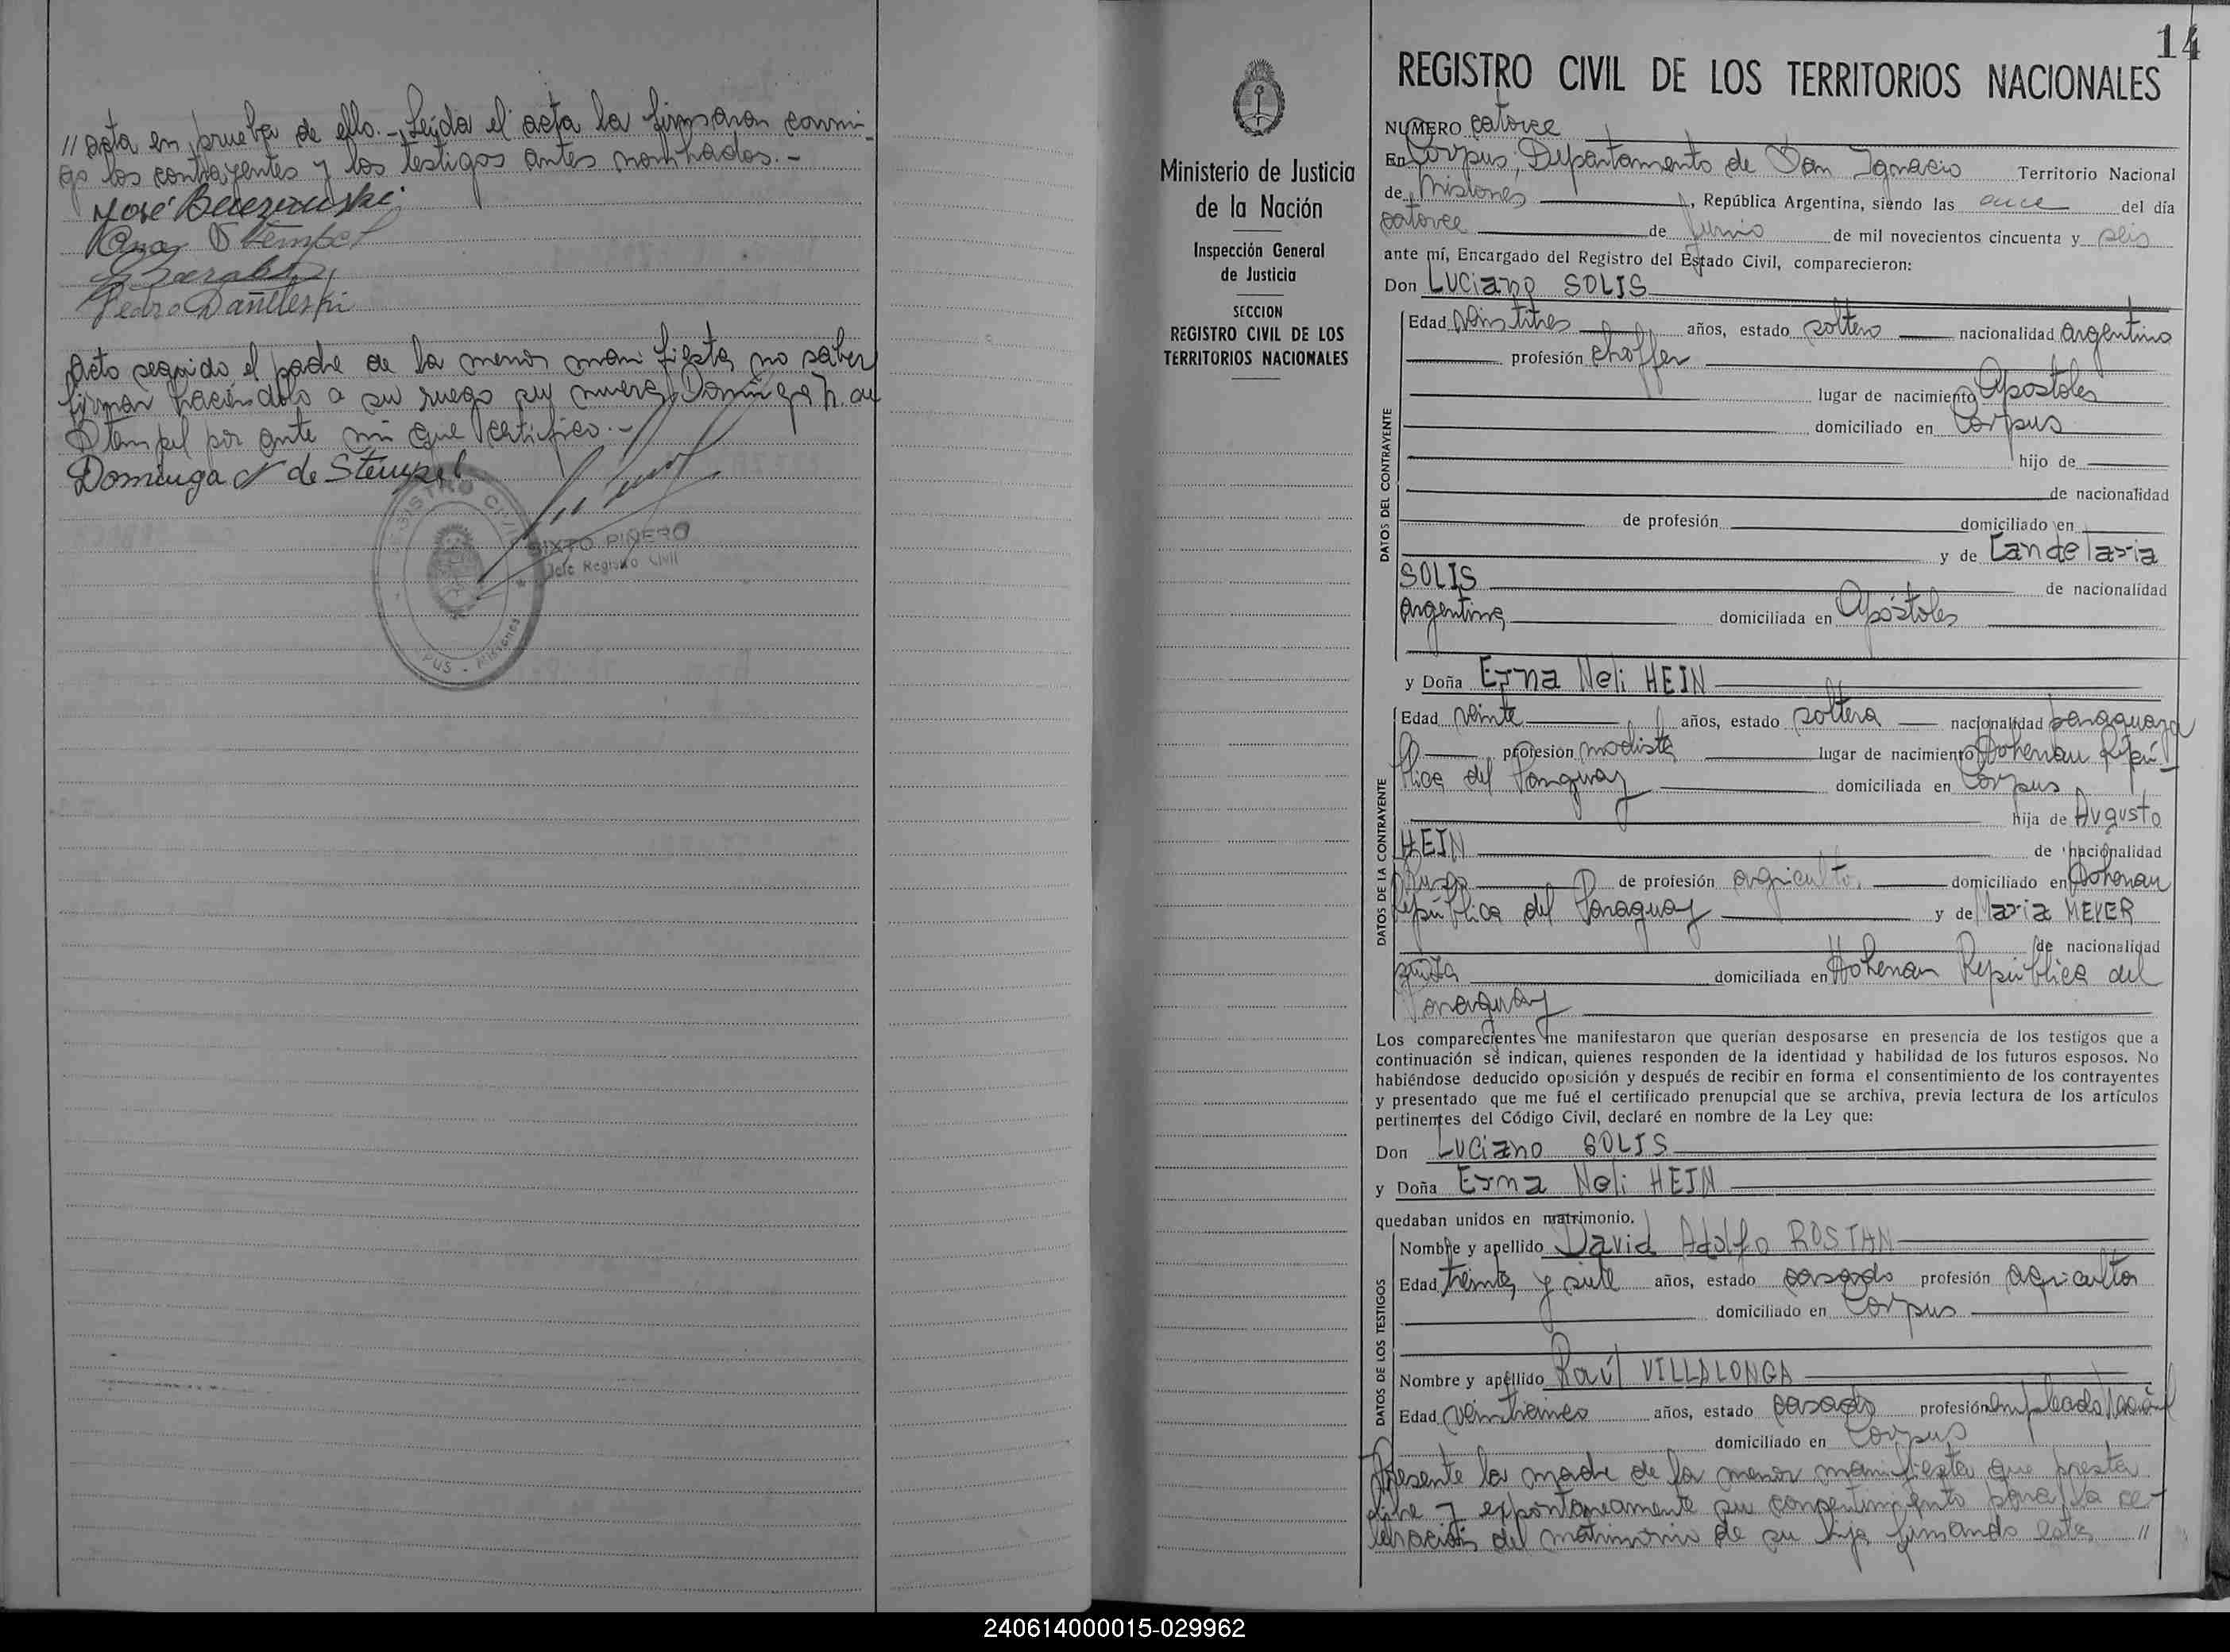 // acta en prueba de ello.- Leída el acta la firmaran conmi-
go los contrayentes y los testigos antes nombrados.-
José
Stempel
Pedro Dañeleski
Acto seguido el padre de la menor manifiesta no saber
firmar haciéndolo a su ruego su nuera Dominga N. de
Stempel por ante mi que certifico.-
Dominga N de Stempel
REGISTRO CIVIL
PUS - Misiones
SIXTO PIÑERO
Jefe Registro Civil
Ministerio de Justicia
de la Nación
Inspección General
de Justicia
SECCION
REGISTRO CIVIL DE LOS
TERRITORIOS NACIONALES
14
REGISTRO CIVIL DE LOS TERRITORIOS NACIONALES
NUMERO catorce
En Corpus, Departamento de San Ignacio Territorio Nacional
de Misiones, República Argentina, siendo las once del día
catorce de Junio de mil novecientos cincuenta y seis
ante mí, Encargado del Registro del Estado Civil, comparecieron:
Don Luciano SOLIS
DATOS DEL CONTRAYENTE
Edad veintitres años, estado soltero nacionalidad argentino
profesión choffer
lugar de nacimiento Apostoles
domiciliado en Corpus
hijo de
de nacionalidad
de profesión domiciliado en
y de Candelaria
SOLIS de nacionalidad
argentina domiciliada en Apóstoles
y Doña Erna Neli HEIN
DATOS DE LA CONTRAYENTE
Edad veinte años, estado soltera nacionalidad paraguaya
profesión modista lugar de nacimiento Hohenau Repú-
blica del Paraguay domiciliada en Corpus
hija de Augusto
HEIN de nacionalidad
de profesión agricultor domiciliado en Hohenau
República del Paraguay y de Maria MEYER
de nacionalidad
domiciliada en Hohenau República del
Paraguay
Los comparecientes me manifestaron que querían desposarse en presencia de los testigos que a
continuación se indican, quienes responden de la identidad y habilidad de los futuros esposos. No
habiéndose deducido oposición y después de recibir en forma el consentimiento de los contrayentes
y presentado que me fué el certificado prenupcial que se archiva, previa lectura de los artículos
pertinentes del Código Civil, declaré en nombre de la Ley que:
Don Luciano SOLIS
y Doña Erna Neli HEIN
quedaban unidos en matrimonio.
DATOS DE LOS TESTIGOS
Nombre y apellido David Adolfo ROSTAN
Edad treinta y siete años, estado casado profesión agricultor
domiciliado en Corpus
Nombre y apellido Raúl VILLALONGA
Edad veinticinco años, estado casado profesión empleado Nacional
domiciliado en Corpus
Presente la madre de la menor manifiesta que presta
libre y expontaneamente su consentimiento para la ce-
lebración del matrimonio de su hija firmando esta //
240614000015-029962